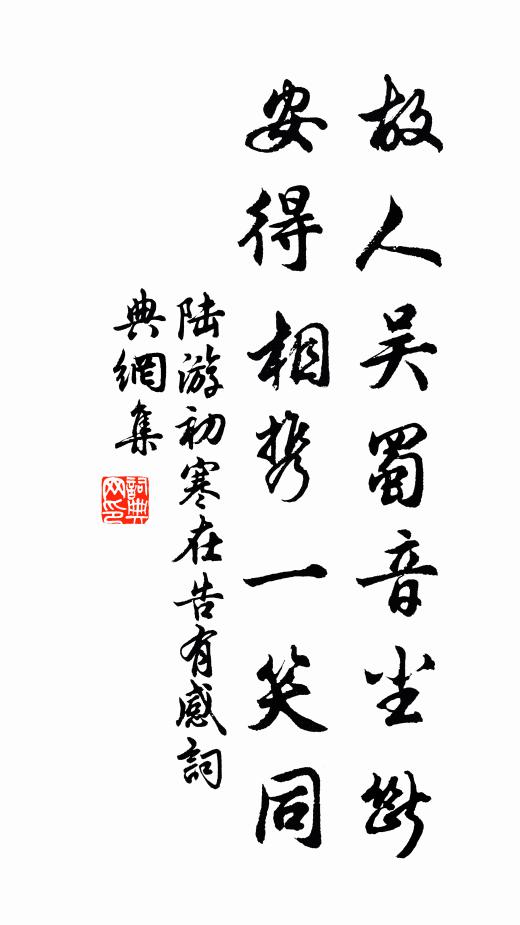 故人吴蜀音尘斷
安得相携一笑同
陆游初寒在告有感詞
典網集
詞典
网印